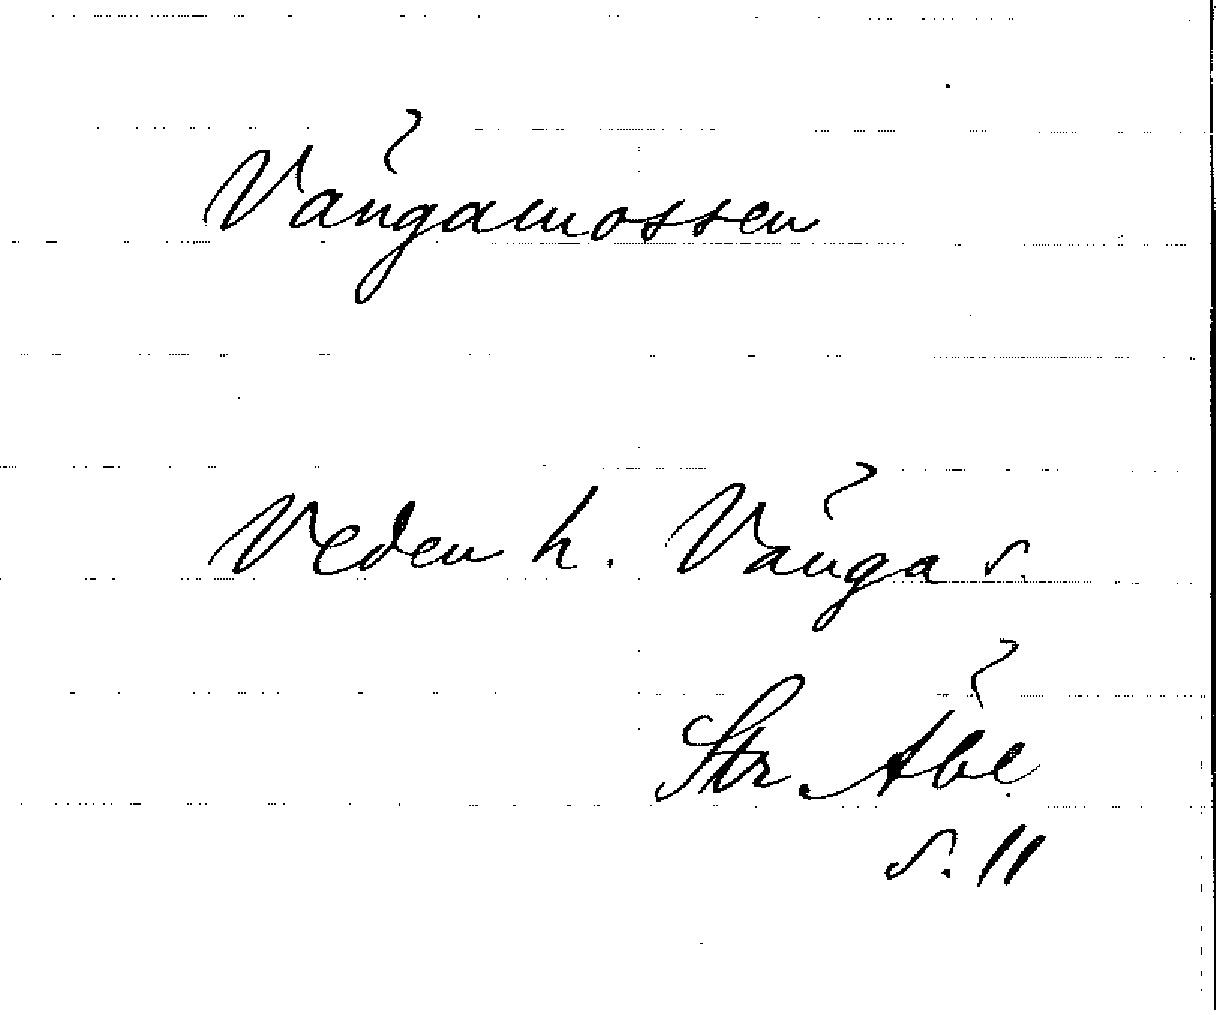 Vångamossen
Veden h. Vånga s.
Str. Åbe.
s. 11